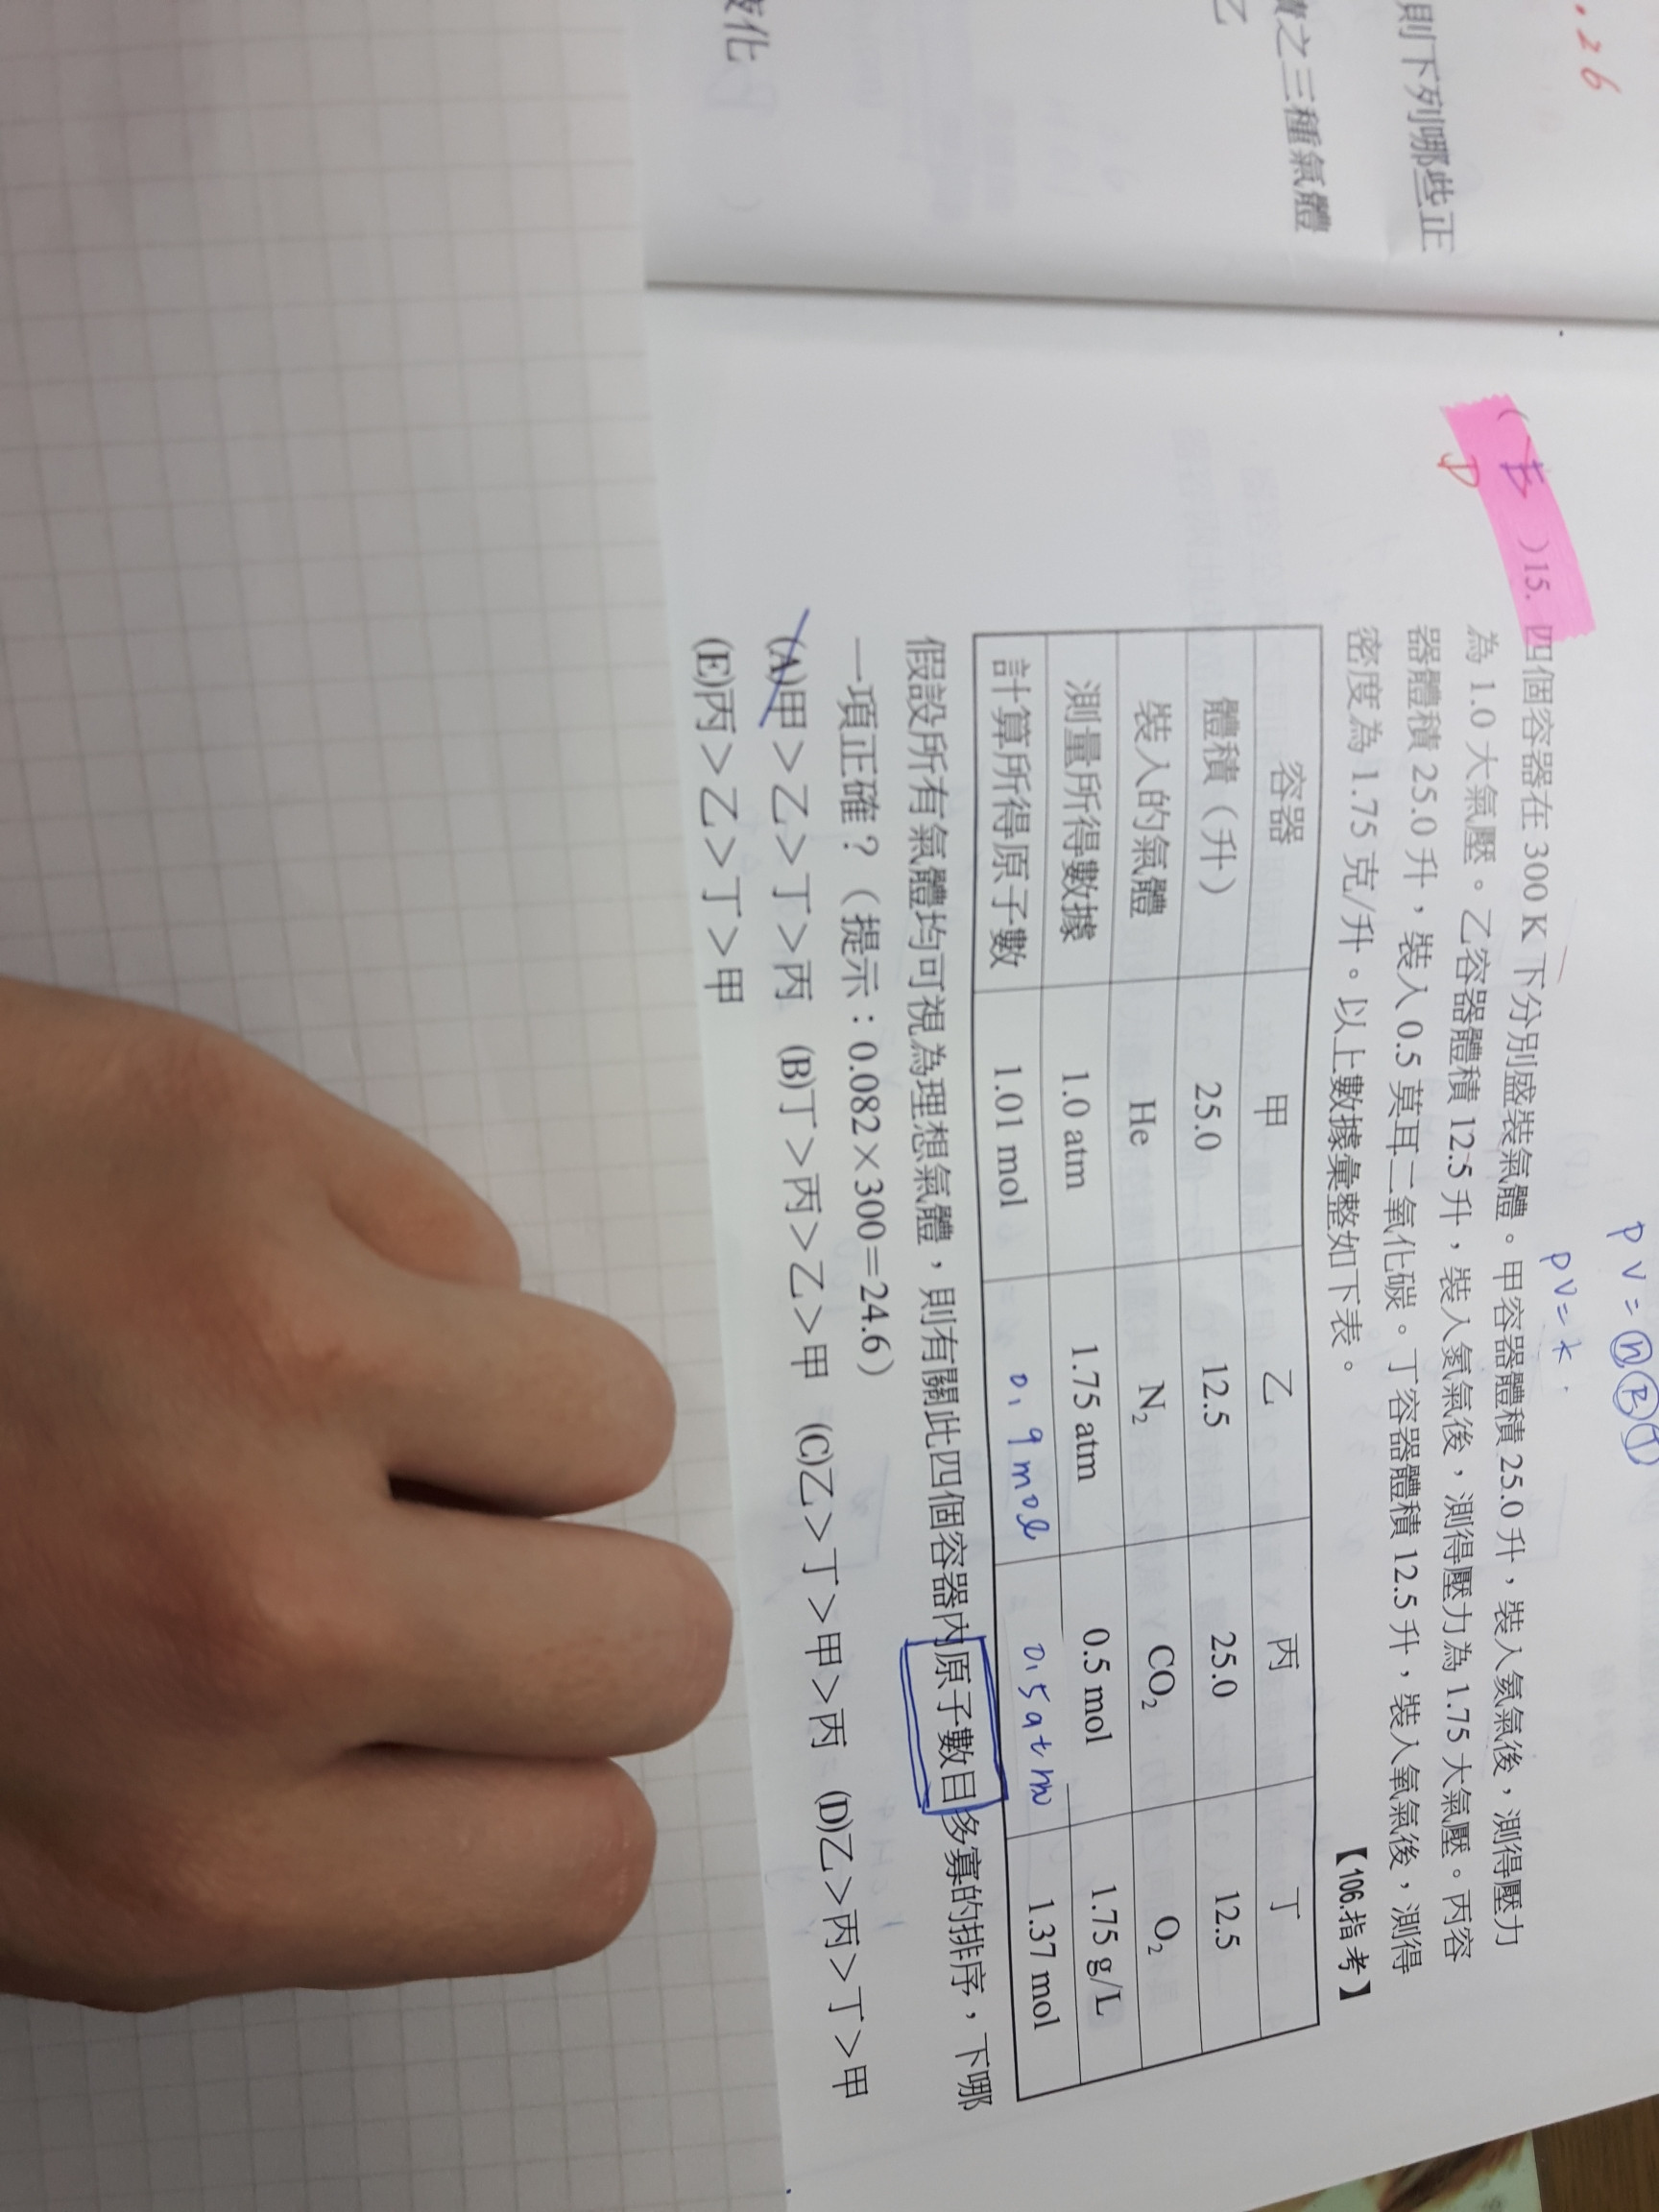 . 2 6
則下列哪些正
之三種氣體
乙
化
PV = nRT
PV = k
( E )15. 四個容器在 300 K 下分別盛裝氣體。甲容器體積 25.0 升，裝入氦氣後，測得壓力
D
為 1.0 大氣壓。乙容器體積 12.5 升，裝入氮氣後，測得壓力為 1.75 大氣壓。丙容
器體積 25.0 升，裝入 0.5 莫耳二氧化碳。丁容器體積 12.5 升，裝入氧氣後，測得
密度為 1.75 克/升。以上數據彙整如下表。 【106.指考】
容器 甲 乙 丙 丁
體積（升） 25.0 12.5 25.0 12.5
裝入的氣體 He N₂ CO₂ O₂
測量所得數據 1.0 atm 1.75 atm 0.5 mol 1.75 g/L
計算所得原子數 1.01 mol 0.9 mol 0.5 atm 1.37 mol
假設所有氣體均可視為理想氣體，則有關此四個容器內原子數目多寡的排序，下哪
一項正確？（提示：0.082×300=24.6）
(A)甲＞乙＞丁＞丙 (B)丁＞丙＞乙＞甲 (C)乙＞丁＞甲＞丙 (D)乙＞丙＞丁＞甲
(E)丙＞乙＞丁＞甲